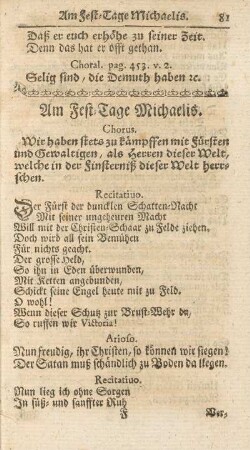 Am Fest-Tage Michaelis. 81
Daß er euch erhöhe zu seiner Zeit.
Denn das hat er öfft gethan.
Choral. pag. 453. v. 2.
Selig sind, die Demuth haben ꝛc.
Am Fest-Tage Michaelis.
Chorus.
Wir haben stets zu kämpffen mit Fürsten
und Gewaltigen, als Herren dieser Welt,
welche in der Finsterniß dieser Welt herr-
schen.
Recitativo.
Der Fürst der duncklen Schatten-Nacht
Mit seiner ungeheuren Macht
Will mit der Christen-Schaar zu Felde ziehen.
Doch wird all sein Bemühen
Für nichts geacht.
Der grosse Held,
So ihn in Eden überwunden,
Mit Ketten angebunden,
Schickt seine Engel heute mit zu Feld.
O wohl!
Wenn dieser Schutz zur Brust-Wehr da,
So ruffen wir Victoria!
Arioso.
Nun freudig, ihr Christen, so können wir siegen!
Der Satan muß schändlich zu Boden da liegen.
Recitativo.
Nun lieg ich ohne Sorgen
In süß- und sanffter Ruh
F